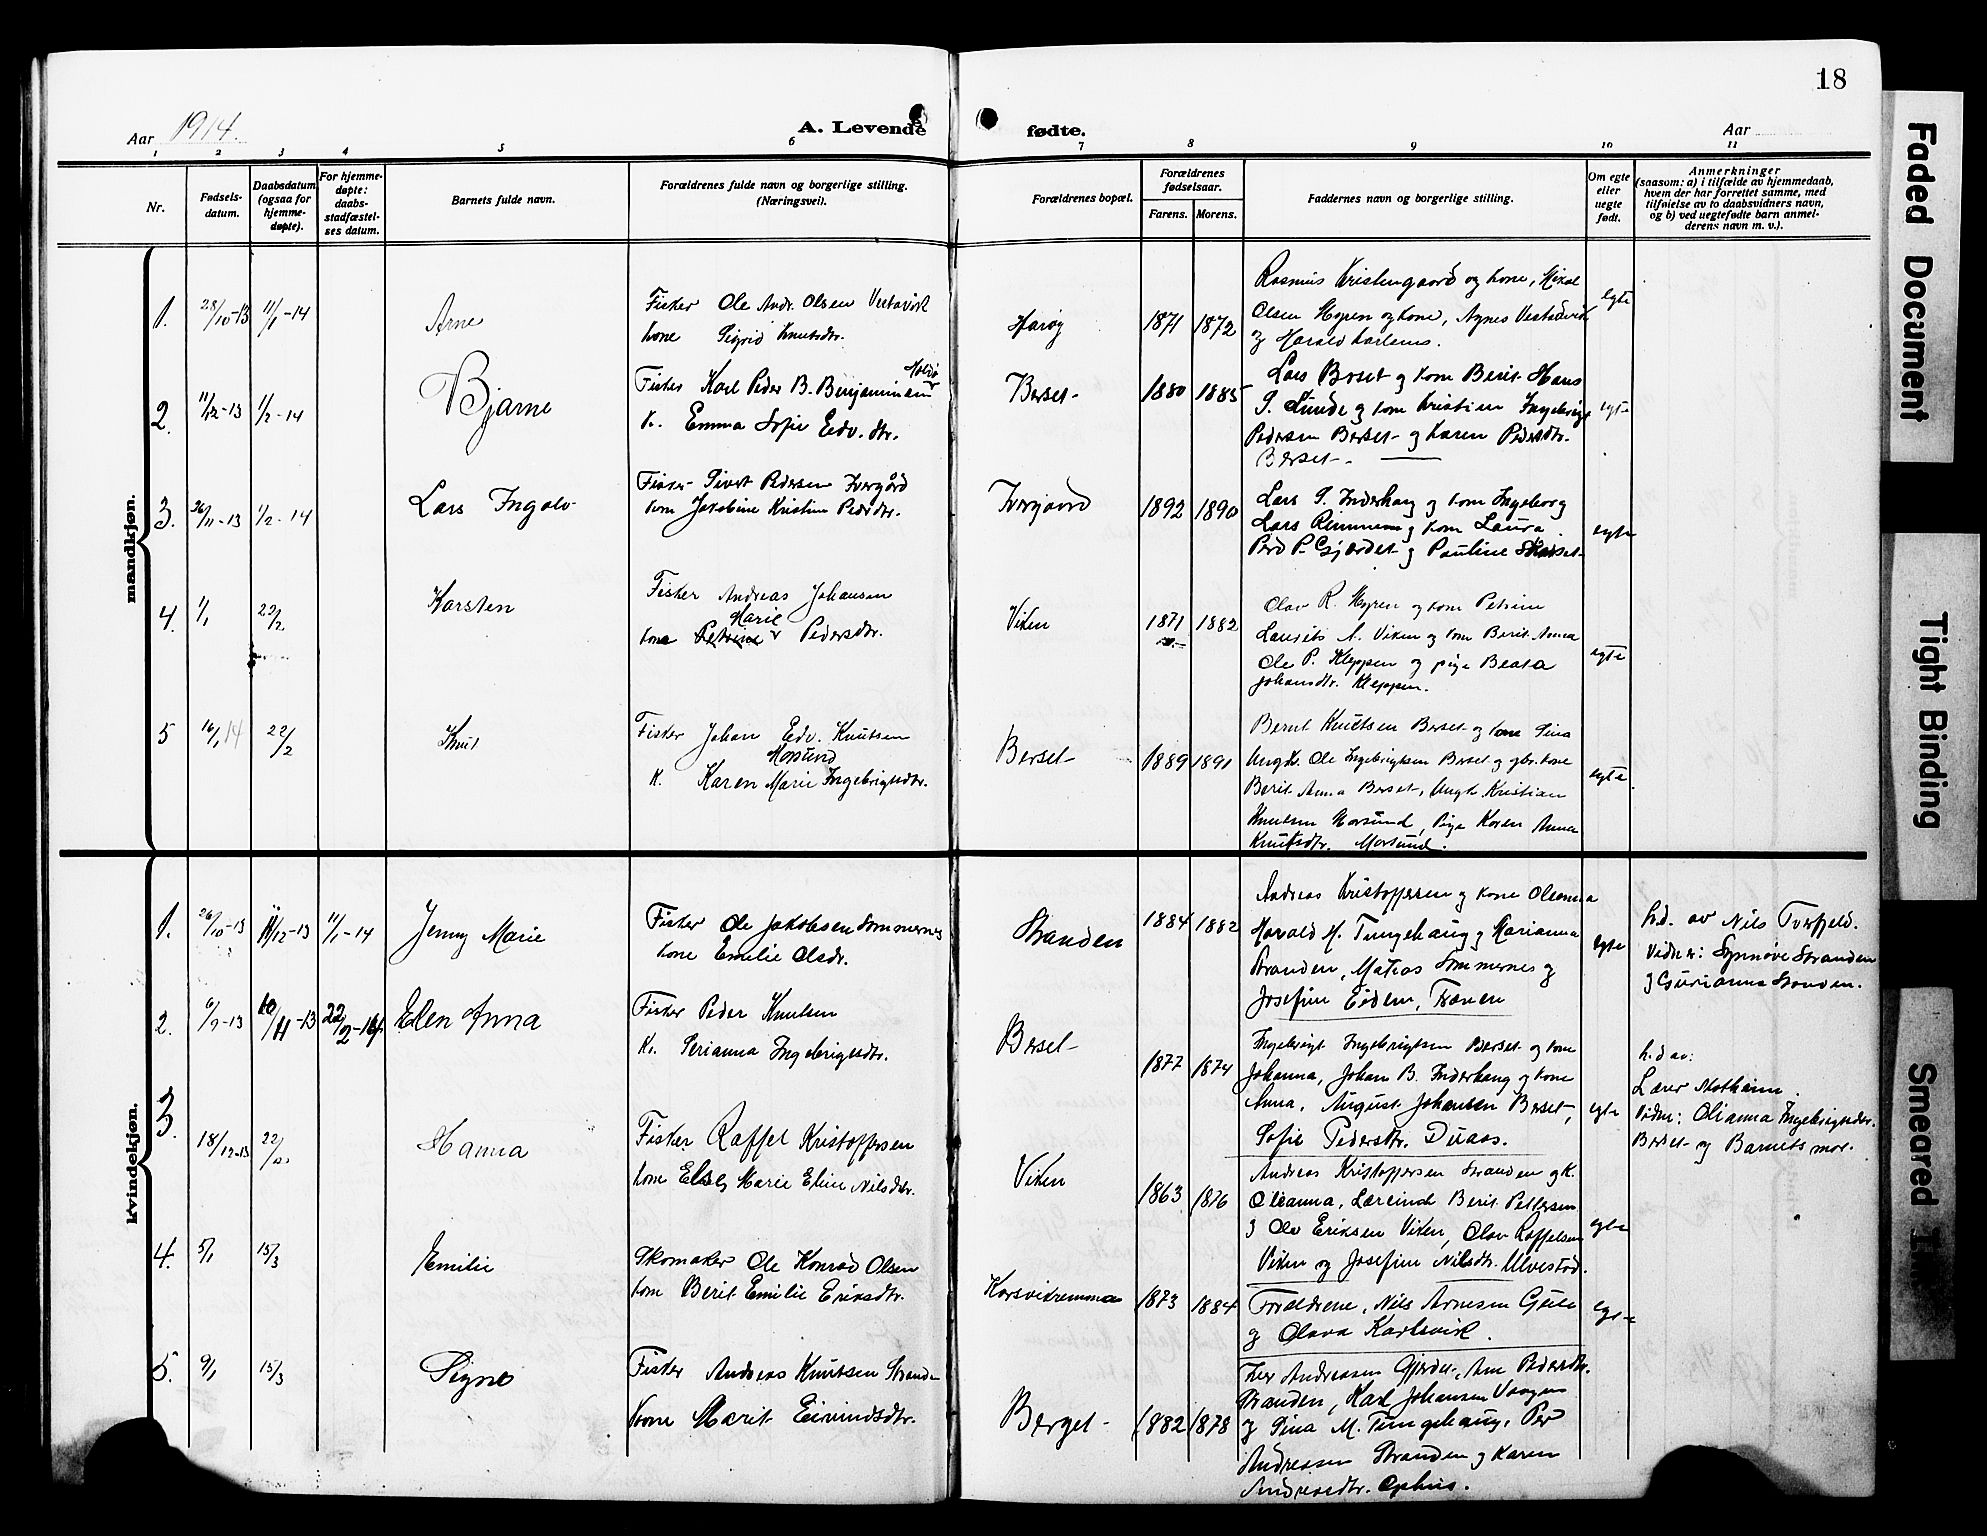 18
Aar 1914.
A. Levende
fødte.
Aar
1 2 3 4 5 6 7 8 9 10 11
Nr.
Fødsels-
datum.
Daabsdatum
(ogsaa for
hjemme-
døpte).
For hjemme-
døpte:
daabs-
stadfæstel-
ses datum.
Barnets fulde navn.
Forældrenes fulde navn og borgerlige stilling.
(Næringsvei).
Forældrenes bopæl.
Forældrenes
fødselsaar.
Farens. Morens.
Faddernes navn og borgerlige stilling.
Om egte
eller
uegte
født.
Anmerkninger
(saasom: a) i tilfælde av hjemmedaab,
hvem der har forrettet samme, med
tilføielse av to daabsvidners navn,
og b) ved uegtefødte barn anmel-
derens navn m. v.).
mandkjøn.
1. 28/10-13 11/1-14
Arne
Fisker Ole Andr. Olsen Vestavik
kone Sigrid Knutsdtr.
Harøy
1871 1872
Rasmus Kristengaard og kone, Mikal
Olsen Myren og kone, Agnes Vestavik
og Harald Karlsens.
egte
2. 11/12-13 1/2-14
Bjarne
Fisker Karl Peder B. Benjaminsen
K. Emma Sofie Edv. dtr.
Berset
1880 1885
Lars Berset og kone Berit Hans
P. Sunde og kone Kristine Ingebrigt
Pedersen Berset og Karen Pedersdtr.
Berset.
egte
3. 26/11-13 1/2-14
Lars Ingolv
Fisker Sivert Pedersen Ivergård
kone Jakobine Kristine Pedsdtr.
Ivergaard
1892 1890
Lars P. Inderhaug og kone Ingeborg
Lars Rimmen og kone Laura
Perd P. Gjærdet og Pauline
egte
4. 1/1 22/2
Karsten
Fisker Andreas Johansen
Marie
kone Petrine Pedersdtr.
Viken
1871 1882
Olav R. Myren og kone Petrine
Laurits A. Viken og kone Berit Anna
Ole P. Kleppen og pige Beata
Johansdtr. Kleppen.
egte
5 16/1 14 22/2
Knut
Fisker Johan Edv. Knutsen
Morsund
K. Karen Marie Ingebrigtsdtr.
Berset
1889 1891
Bernt Knutsen Berset og kone Sina
Ungk. Ole Ingebrigtsen Berset og gbr. kone
Berit Anna Berset, Ungk. Kristian
Knutsen Morsund, Pige Karen Anna
Knutsdtr. Morsund.
egte
kvindekjøn.
1. 26/10-13 11/12-13 11/1-14
Jenny Marie
Fisker Ole Jakobsen Sommernes
kone Emilie Olsdr.
Stranden
1884 1882
Andreas Kristoffersen og kone Oleanna
Harald M. Tungehaug og Marianna
Stranden, Matias Sommernes og
Josefine Eidem, Trænen
egte
h.d. av Nils Torfjeld.
Vidner: Synnøve Stranden
og Gurianna Stranden.
2. 6/9-13 10/11-13 22/2-14
Elen Anna
Fisker Peder Knutsen
K. Serianna Ingebrigtsdtr.
Berset
1877 1874
Ingebrigt Ingebrigtsen Berset og kone
Johanna, Johan B. Inderhaug og kone
Anna, August Johansen Berset,
Sofie Pedersdtr. Duaas.
egte
h.d av:
Lærer Nothaim.
Vidn: Olianna Ingebrigtsdtr.
Berset og Barnets mor.
3. 18/12-13 22/2
Hanna
Fisker Raffel Kristoffersen
kone Elsely Marie Eline Nilsdtr.
Viken
1863 1876
Andreas Kristoffersen Stranden og K.
Oleanna, Lærerinde Berit Pettersen
og Olav Eriksen Viken, Olav Raffelsen
Viken og Josefine Nilsdtr. Ulvestad.
egte
4. 5/1 15/3
Emilie
Skomaker Ole Konrad Olsen
kone Berit Emilie Eriksdtr.
Korsvikremma
1873 1884
Forældrene, Nils Arnesen Gule
og Olava Karlsvik.
egte
5. 9/1 15/3
Signe
Fisker Andreas Knutsen Stranden
Kone Marit Eivindsdtr.
Berget
1882 1878
Iver Andreassen Gjerdet, Ane Pedersdtr.
Stranden, Karl Johansen Vaagen
og Sina M. Tungehaug, Per
Andreassen Stranden og Karen
Andreasdtr. Ophus.
Faded Document
Tight Binding
Smeared